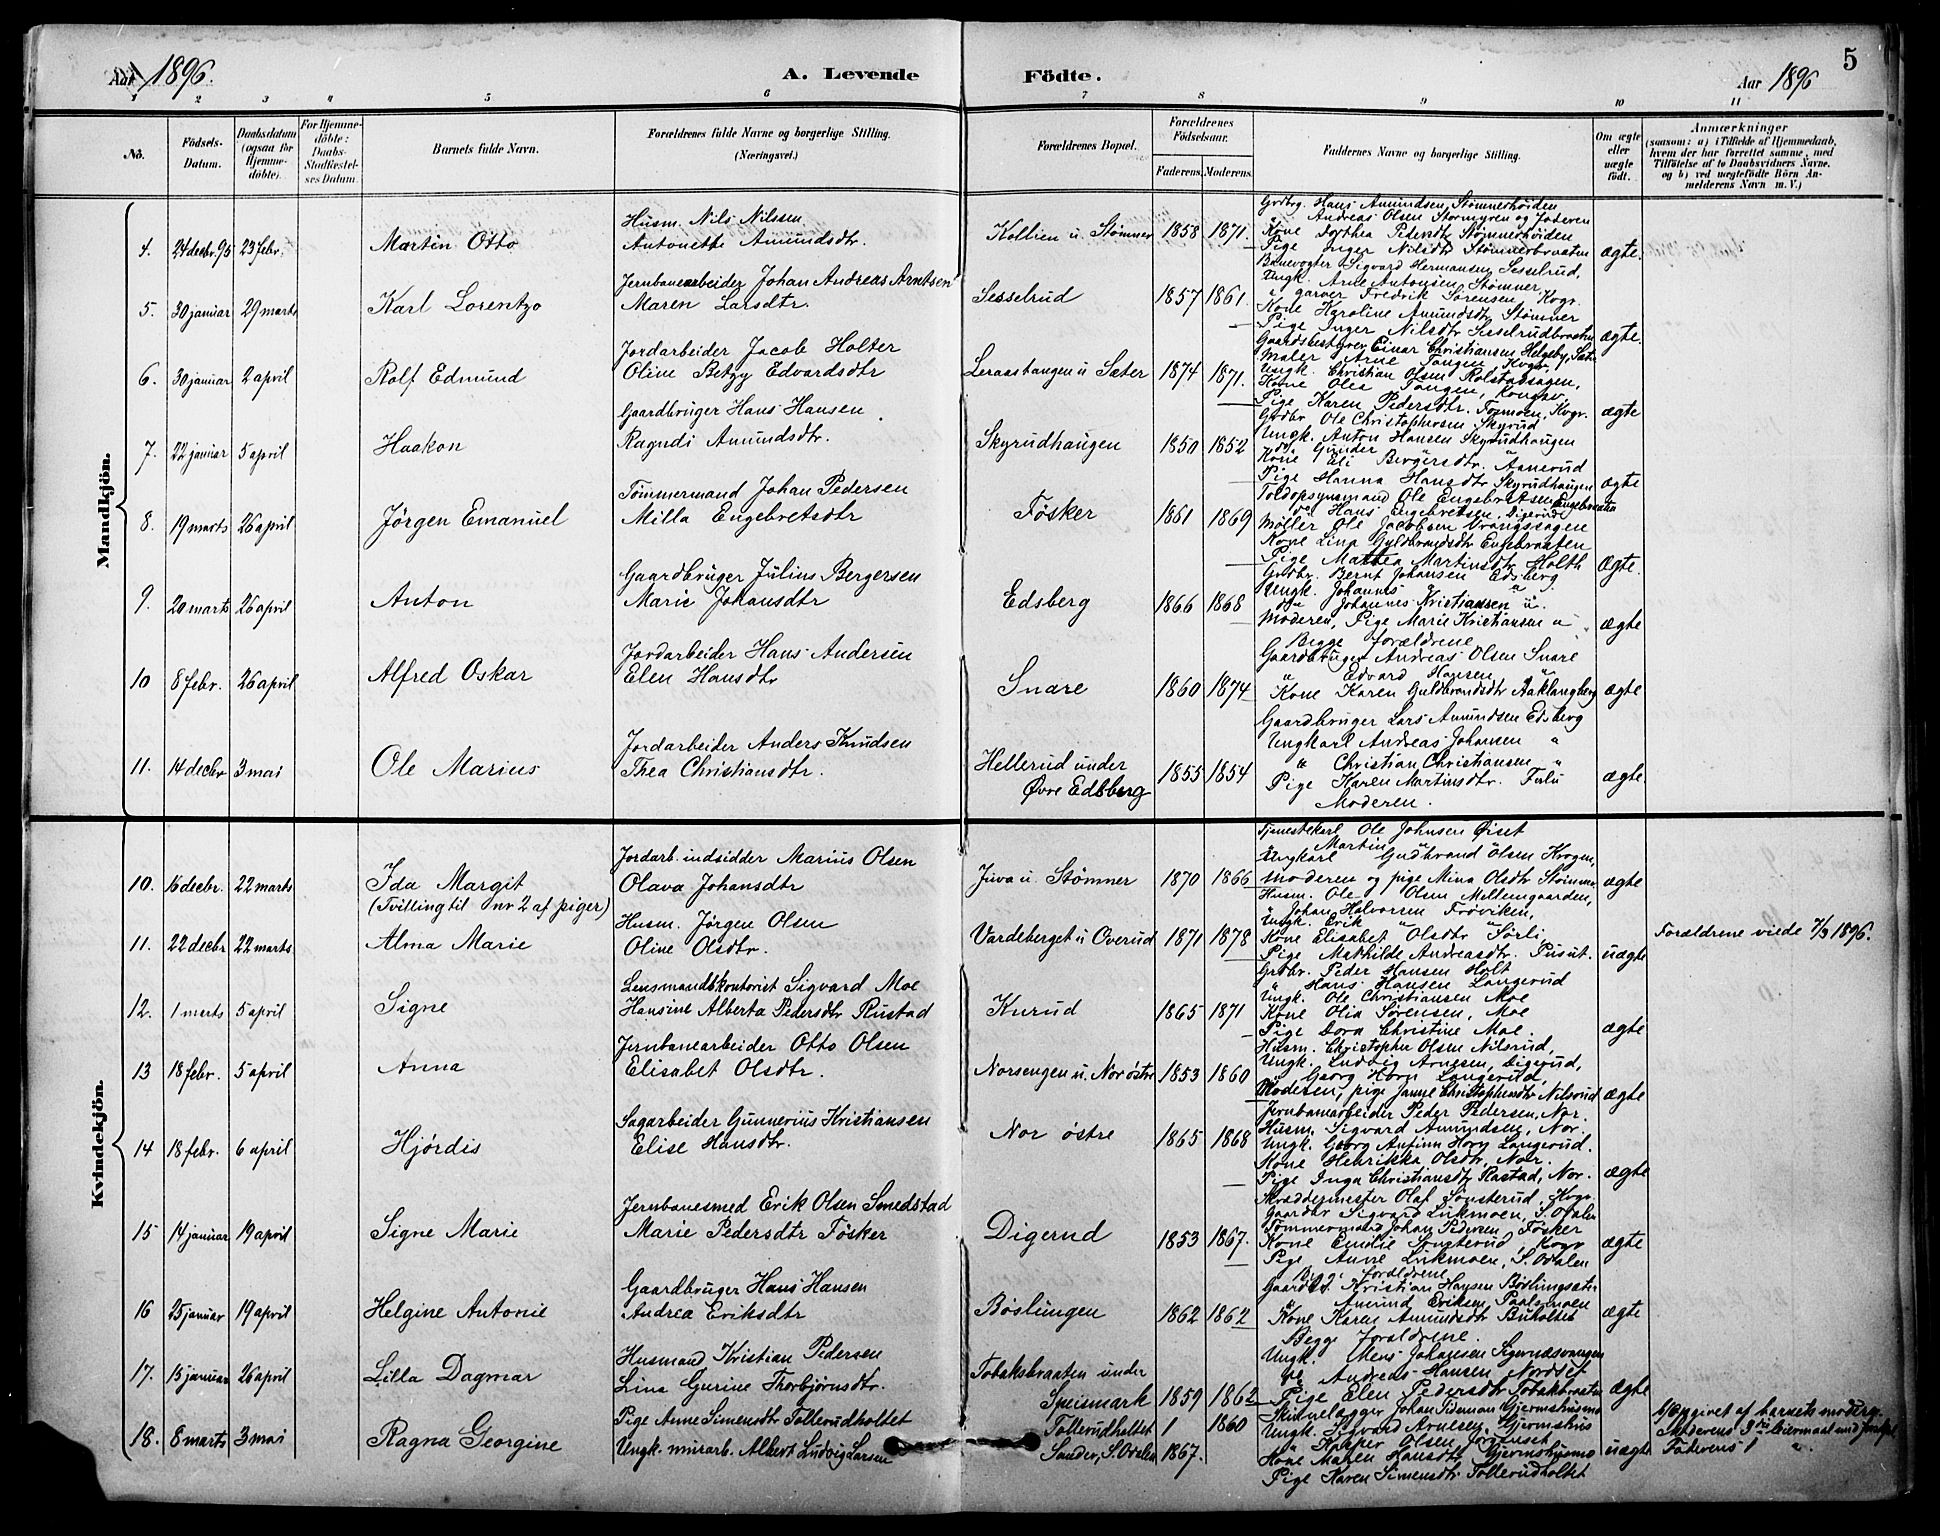 Aar 1896.
A. Levende Födte.
Aar 1896
5
1 2 3 4 5 6 7 8 9 10 11
No.
Födsels-Datum.
Daabsdatum (ogsaa for Hjemme-döbte).
For Hjemme-döbte: Daabs-Stadfæstel-ses Datum.
Barnets fulde Navn.
Forældrenes fulde Navne og borgerlige Stilling. (Næringsvei.)
Forældrenes Bopæl.
Forældrenes Födselsaar.
Faderens. Moderens.
Faddernes Navne og borgerlige Stilling.
Om ægte eller uægte födt.
Anmærkninger
(saasom: a) i Tilfælde af Hjemmedaab, hvem der har forrettet samme, med Tilföielse af to Daabsvidners Navne, og b) ved uægtefödte Börn An-melderens Navn m. V.)
Mandkjön.
4. 24 decbr. 95 23 febr. Martin Otto
Husm. Nils Nilssen
Antonette Amundsdtr.
Kollien u. Stømner 1858 1871.
Grdbrg. Hans Amundsen, Stømnerhøiden
" Andreas Olsen Stormyren og Faderen
Kone Dorthea Pedersdtr Stømnerhøiden
Pige Inger Nilsdtr Stømnerbraaten
ægte.
5. 30 januar 29 marts Karl Lorentzo
Jernbanearbeider Johan Andreas Arntsen
Maren Larsdtr.
Sesselrud 1857 1861.
Banevogter Sigvard Hermansen, Sesselrud,
Ungk. Arne Antonsen Stømner,
" garver Fredrik Sørensen, Kvgr.
Kone Karoline Amundsdtr Stømner
Pige Inger Nilsdtr Sesselrudbraaten
ægte.
6. 30 januar 2 april Rolf Edmund
Jordarbeider Jacob Holter
Oline Betzy Edvardsdtr
Leraastangen u. Sæter 1874 1871.
Gaardsbestyrer Einar Christiansen Helgeby, Sæter
Maler Arne Tangen, Kvgr,
Ungk. Christian Olsen Rolstadsagen,
Kone Olea Tangen, Kongsv.
Pige Karen Pedersdtr. Formoen, Kvgr.
ægte
7. 22 januar 5 april Haakon
Gaardbruger Hans Hansen
Ragndi Amundsdtr.
Skyrudhaugen 1850 1852
Grdbr Ole Christophersen Skyrud
Ungk. Anton Hansen Skyrudhaugen
do. Gunder " "
Kone Eli Bergersdtr. Aanerud
Pige Hanna Hansdtr Skyrudhaugen
ægte
8. 19 marts 26 april Jörgen Emanuel
Tömmermand Johan Pedersen
Milla Engebretsdtr
Fösker 1861 1869
Toldopsynsmand Ole Engebretsen Engebraaten
do Hans Engebretsen, Digerud
Møller Ole Jacobsen Vrangssagen
Kone Lina Gyldbrandsdtr Engebraaten
Pige Mathea Martinsdtr Holth
ægte.
9. 20 marts 26 april Anton
Gaardbruger Julius Bergersen
Marie Johansdtr
Edsberg 1866 1868
Grdbr. Bernt Johansen Edsberg
Ungk. Johannes "
do Johannes Kristiansen u.
Moderen, Pige Marie Kristiansen u "
ægte
10 8 febr. 26 april Alfred Oskar
Jordarbeider Hans Andersen
Elen Hansdtr
Snare 1860 1874
Begge Forældrene
Gaardbruger Andreas Olsen Snare
" Edvard Hansen "
Kone Karen Guldbrandsdtr Aaklangberg
ægte
11. 14 decbr 3 mai Ole Marius
Jordarbeider Anders Knudsen
Thea Christiansdtr.
Hellerud under Øvre Edsberg 1855 1854
Gaardbruger Lars Amundsen Edsberg
Ungkarl Andreas Johansen "
" Christian Christiansen "
Pige Karen Martinsdtr. Fulu
Moderen.
ægte
Kvindekjön.
10. 16 decbr. 22 marts Ida Margit
(Tvilling til nr 2 af piger)
Jordarb. indsidder Marius Olsen
Olava Johansdtr
Juva u. Stømner 1870 1866
Tjenestekarl Ole Johnsen Øiset
Martin "
Ungkarl Gudbrand Olsen Kvogen,
Moderen og pige Mina Olsdtr Stømner
ægte
11. 22 decbr 22 marts Alma Marie
Husm. Jörgen Olsen
Oline Olsdtr.
Vardeberget u Overud 1871 1878
Husm. Ole Olsen Mellemgaarden,
" Johan Halvorsen Frøviken,
Ungk. Erik " "
Kone Elisabet Olsdtr Sørli
Pige Mathilde Andreasdtr. Pusut.
uægte
Forældrene viede 7/3 1896.
12. 1 marts 5 april Signe
Lensmandskontorist Sigvard Moe
Hansine Alberta Pedersdtr Rustad
Kurud 1865 1871
Grdbr. Peder Hansen Holt
" Hans Hansen Langerud
Ungk. Ole Christiansen Moe
Kone Olia Sørensen, Moe
Pige Dora Christine Moe.
ægte
13 18 febr. 5 april Anna
Jernbanearbeider Otto Olsen
Elisabet Olsdtr.
Norsengen u. Nor østre 1853 1860
Husm. Christopher Olsen Nilsrud,
Ungk. Ludvig Arnesen, Digerud,
" Georg Horn Langerud,
Moderen, pige Janne Christophersdtr Nilsrud
ægte
14 18 febr. 6 april Hjördis
Sagarbeider Gunnerius Kristiansen
Elise Hansdtr.
Nor østre 1865 1868
Jernbanearbeider Peder Pedersen, Nor.
Husm. Sigvard Amundsen, Nor.
Ungk. Georg Anton Horn Langerud.
Kone Henrikka Olsdtr, Nor.
Pige Inga Christiansdtr Rastad, Nor.
ægte
15 14 januar 19 april Signe Marie
Jernbanesmed Erik Olsen Smedstad
Marie Pedersdtr Fösker
Digerud 1853 1867.
Skræddermester Olaf Sønsterud, Kvgr.
Gaardbr Sigvard Lukmoen, S. Odalen
Tømmermand Johan Pedersen Fösker
Kone Emilie Sønsterud, Kvgr
Pige Anne Lukmoen, S. Odalen
ægte
16 25 januar 19 april Helgine Antonie
Gaardbruger Hans Hansen
Andrea Eriksdtr
Böslungen 1862 1862
Begge Forældrene
Gaardbr. Kristian Hansen Böslungsæter
" Amund Eriksen Paalsmoen
Kone Karen Amundsdtr Buholtet
ægte
17. 15 januar 26 april Lilla Dagmar
Husmand Kristian Pedersen
Lina Gurine Thorbjørnsdtr.
Tobaksbraaten under Speismark 1859 1862
Begge Forældrene.
Ungk. Mens Johansen Sigernæsvangen
do Andreas Hansen Nordset
Pige Elen Pedersdtr Tobaksbraaten
ægte
18. 8 marts 3 mai Ragna Georgine
Pige Anne Simensdtr Tollerudholtet
Ungk. murarb. Albert Ludvig Larsen
Tollerudholtet 1 1860
Sander, S. Odalen 1867.
Skindlægger Johan Sideman Gjermshusmo
Ungk. Sigvard Arnesen, Gjermshus
" Kasper Olsen Jørenset
Kone Maren Hansdtr Gjermshusmo
Pige Karen Simensdtr Tollerudholtet
uægte
b) Opgivet af barnets moder.
Moderens 3die leiermaal
Faderens 1 "